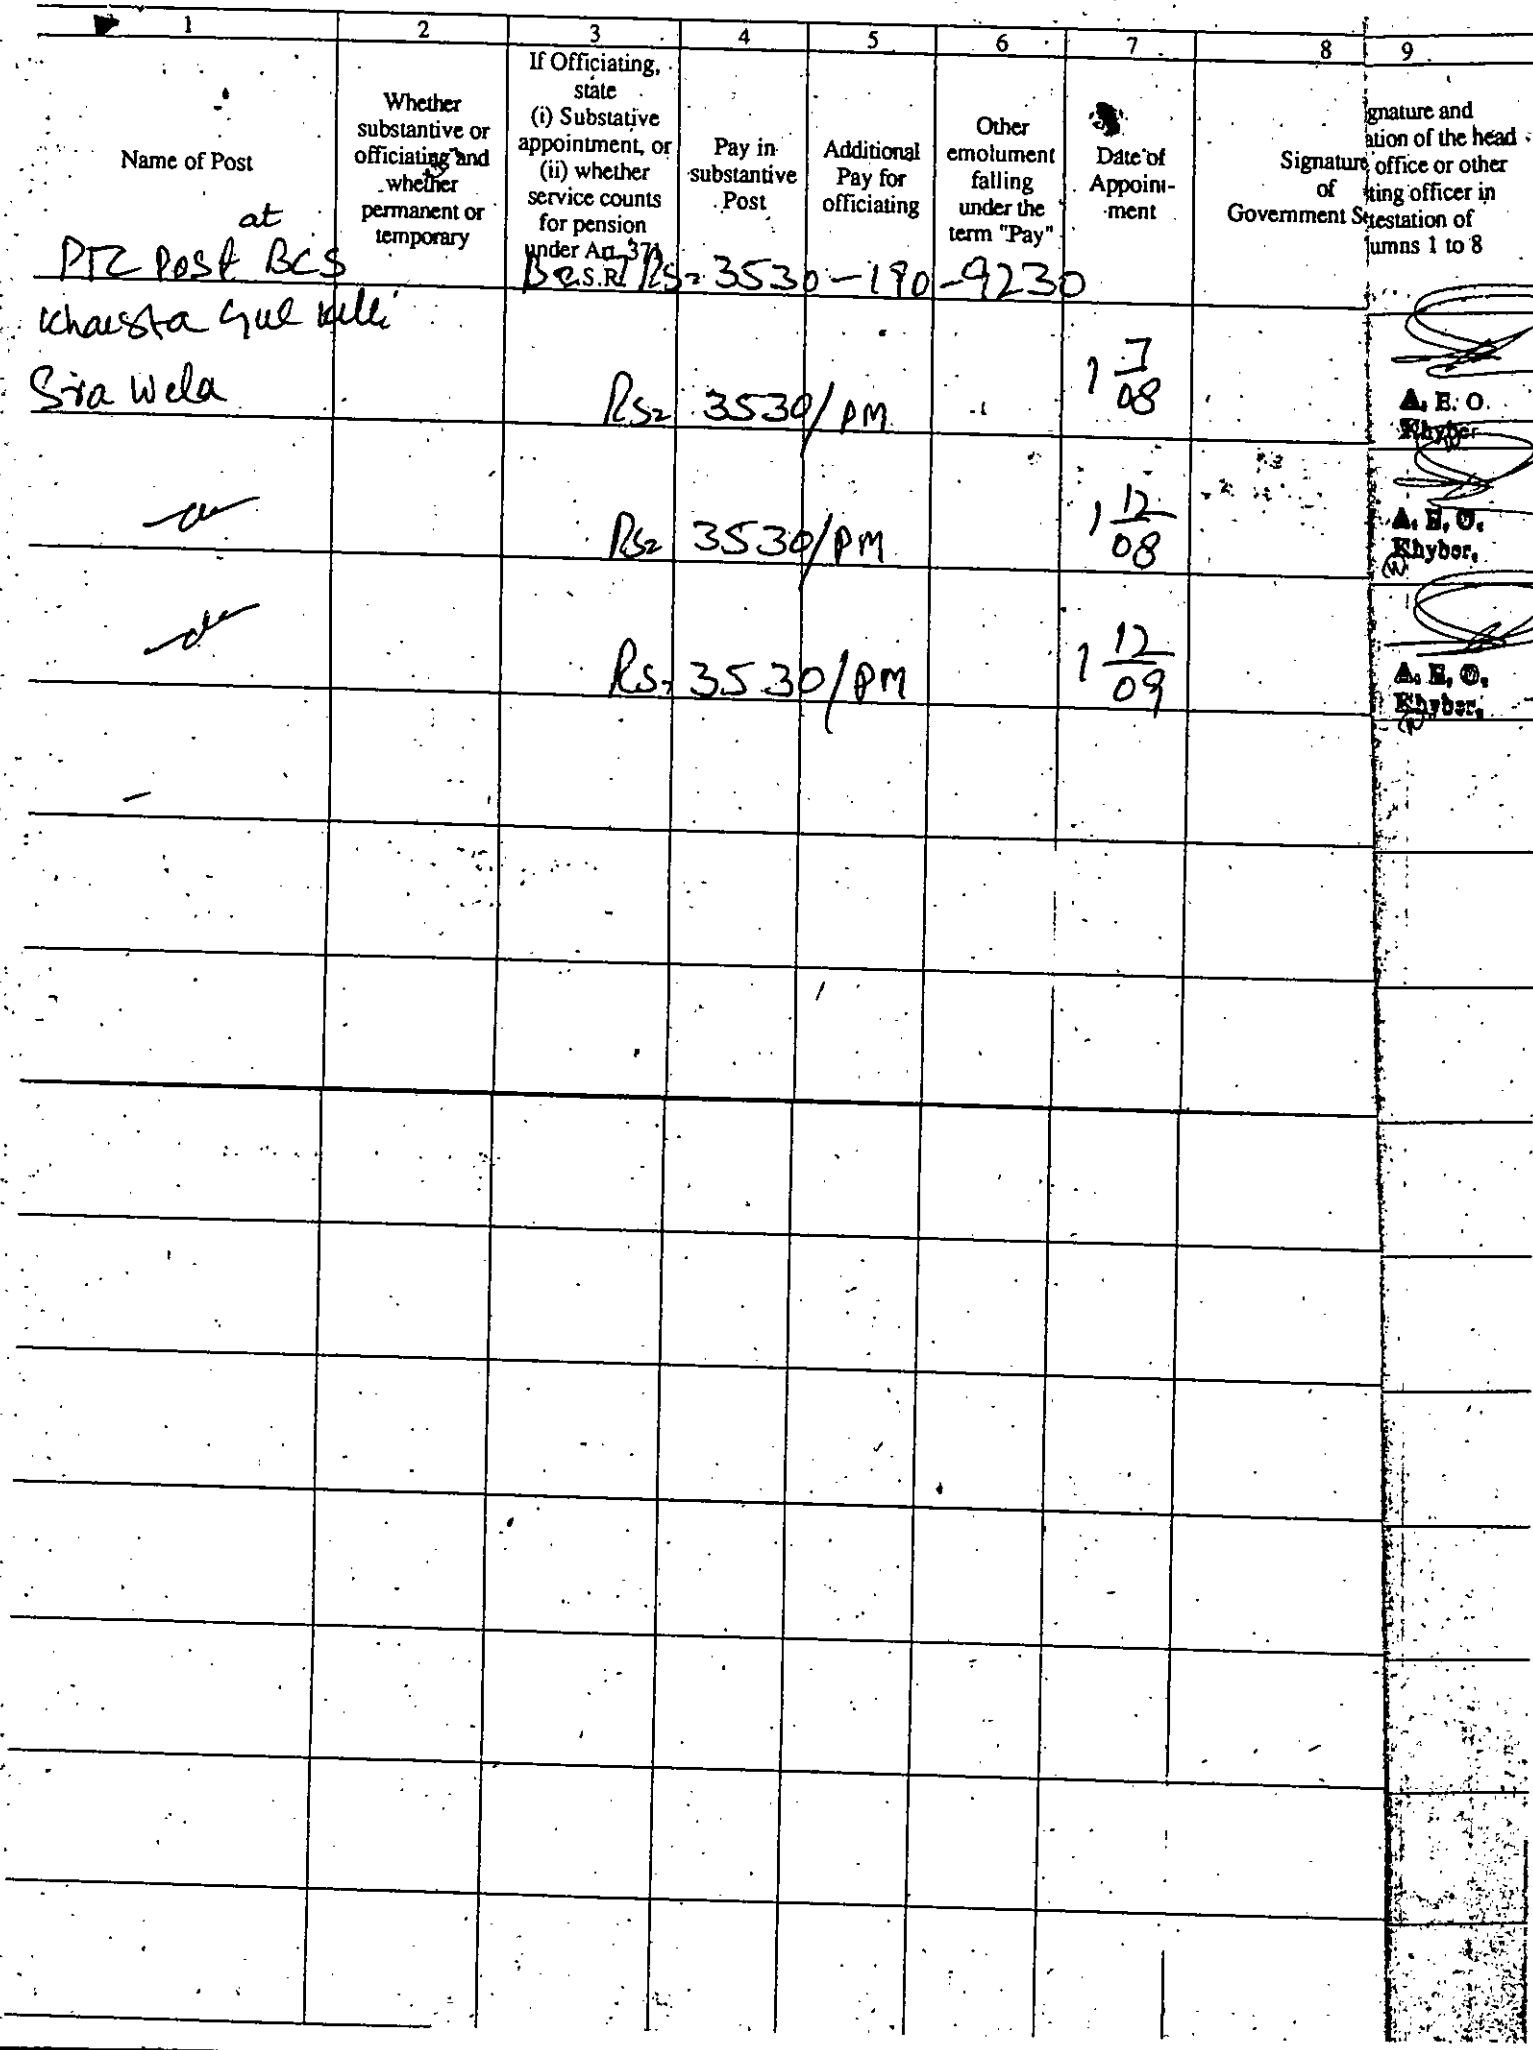 1 2 3 4 5 6 7 8 9
Name of Post
Whether
substantive or
officiating and
whether
permanent or
temporary
If Officiating,
state
(i) Substative
appointment, or
(ii) whether
service counts
for pension
under Art. 371
C.S.R.
Pay in
substantive
Post
Additional
Pay for
officiating
Other
emolument
falling
under the
term "Pay"
Date of
Appoint-
ment
Signature
of
Government S
gnature and
ation of the head
office or other
ting officer in
testation of
umns 1 to 8
at
PTC Post BCS
Rs= 3530-190-9230
Khaista Gul Killi
Sra Wela
Rs= 3530/PM
1 7/08
A. E. O.
Khyber
Rs= 3530/PM
1 12/08
A. E. O.
Khyber.
Rs= 3530/PM
1 12/09
A. E. O.
Khyber.